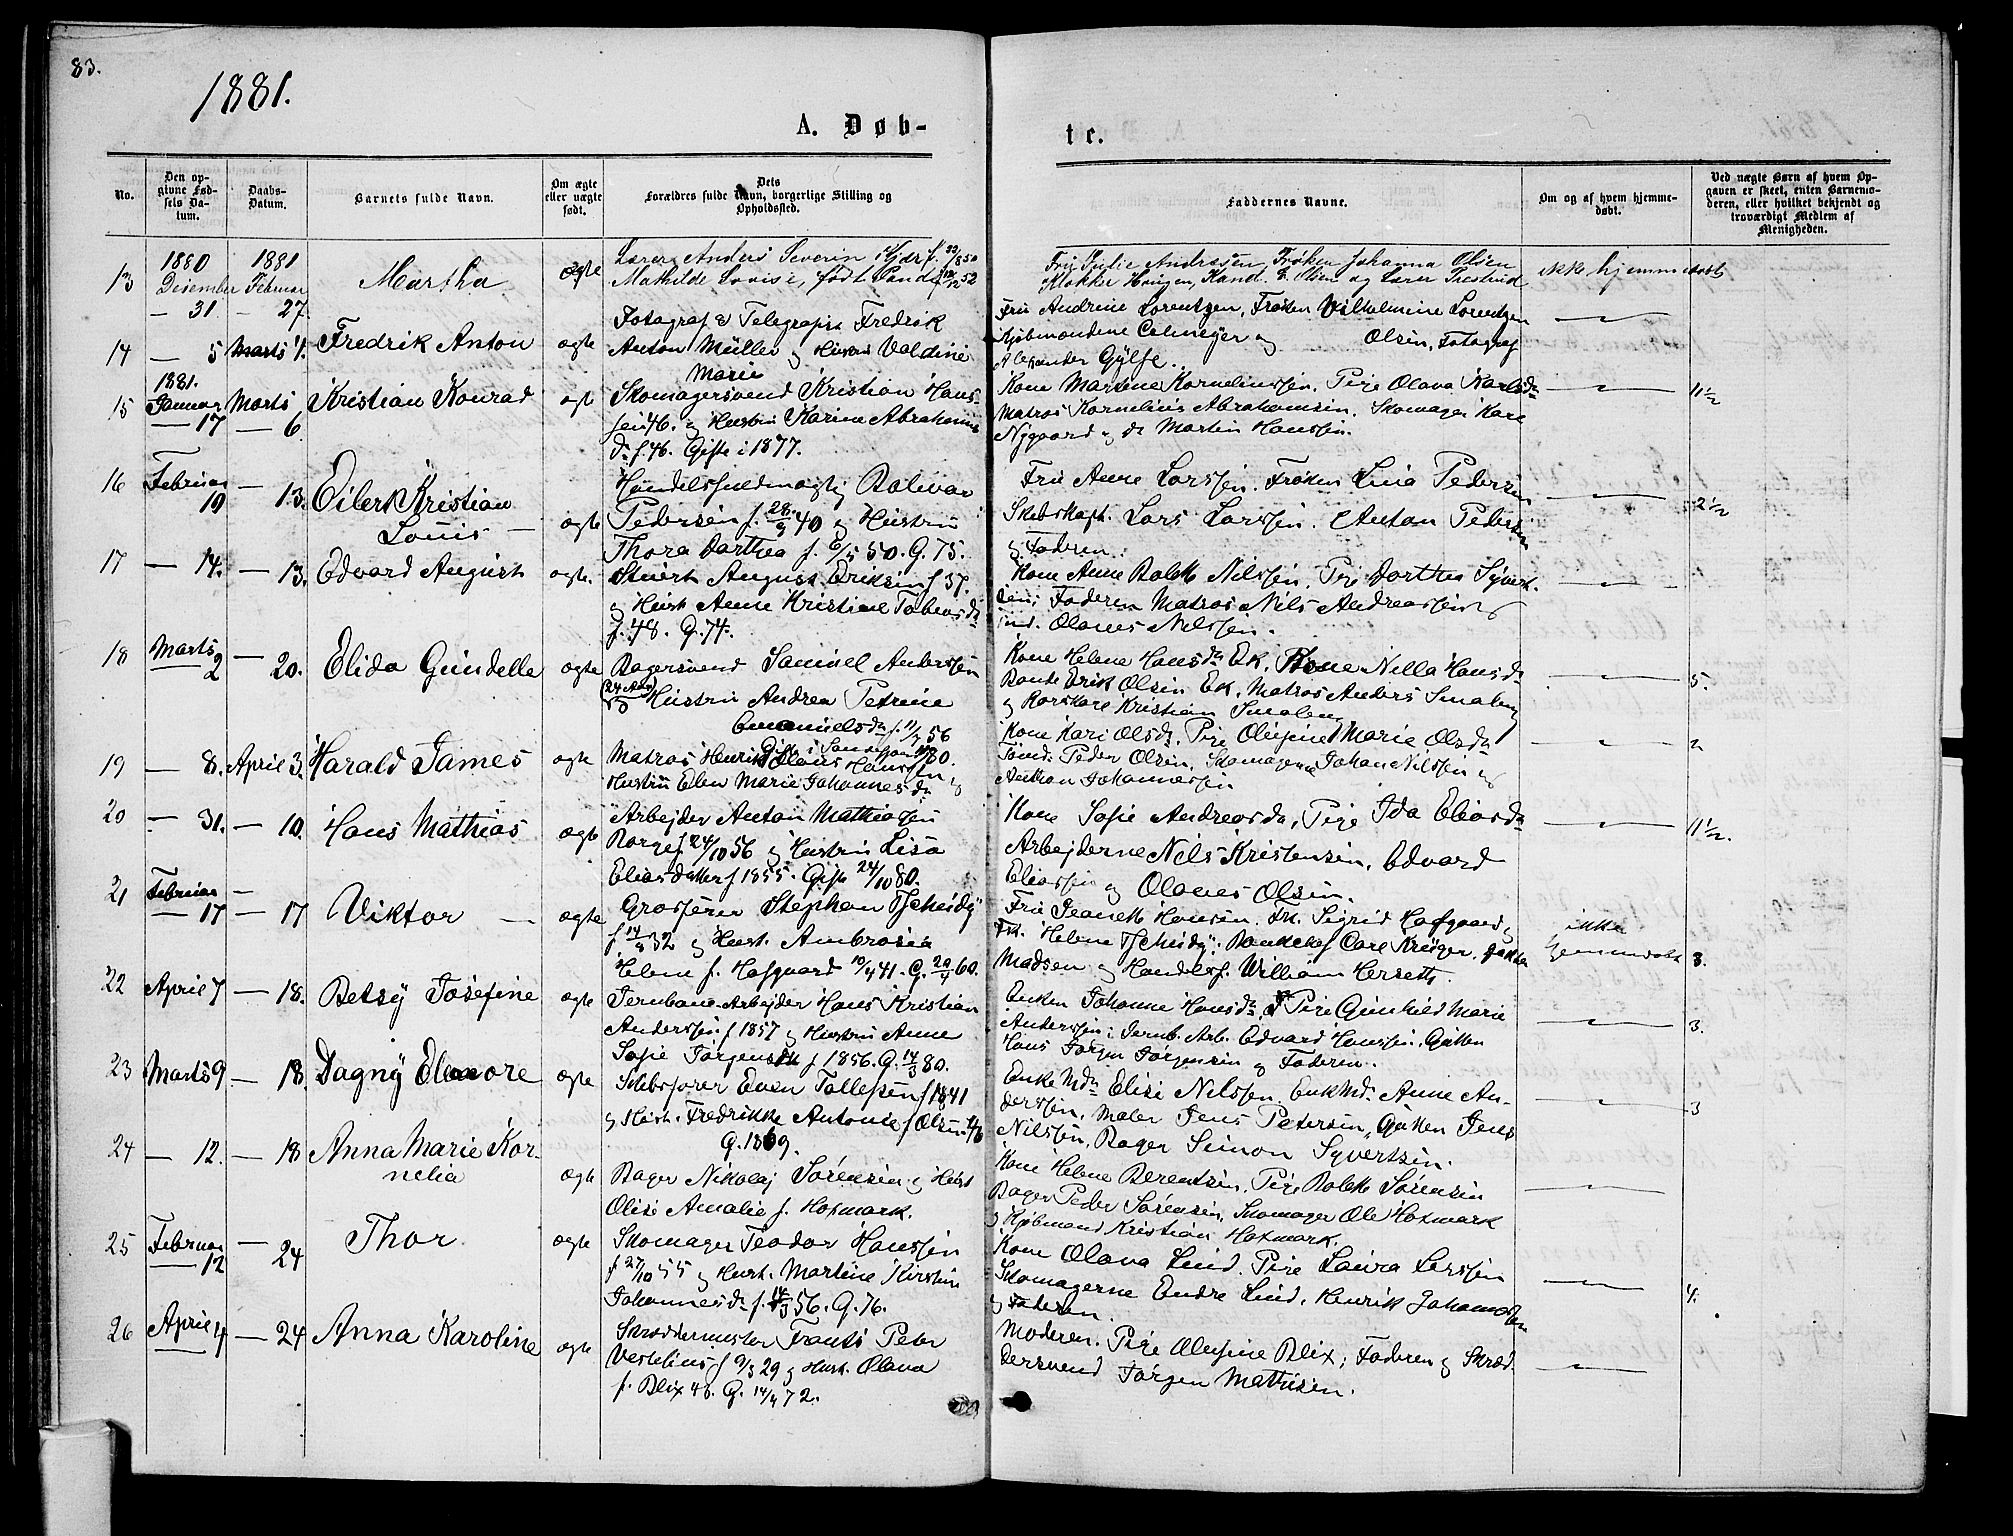 83.
1881.
A. Døb-
te.
No.
Den opgivne Fødsels Datum.
Daabs-Datum.
Barnets fulde Navn.
Om ægte eller uægte født.
Dets Forældres fulde Navn, borgerlige Stilling og Opholdssted.
Faddernes Navne.
Om og af hvem hjemmedøbt.
Ved uægte Børn af hvem Opgaven er skeet, enten Barnemoderen, eller hvilket bekjendt og troværdigt Medlem af Menigheden.
13 1880 Desember 31. 1881 Februar 27. Martha ægte
Lærer Anders Severin Kjær f. 22/8 50
Mathilde Lovise, født
Fru Julie Andresen Frøken Johanna Olsen
Klokker Haugen, Kand. Olsen og Lærer
ikke hjemmedøbt
14 — 5 Marts 4. Fredrik Anton ægte
Fotograf & Telegrafist Fredrik
Anton Müller og Hustru Valdine
Marie
Fru Andrine Lorentzen, Frøken Vilhelmine Lorentzen
Kjøbmændene og Olsen, Fotograf
Alexander Gylfe.
15 1881. Januar 17 Marts 6. Kristian Konrad ægt
Skomagersvend Kristian Hans-
sen 46. og Hustru Karine Abrahams
Dr f. 46. Gifte i 1877.
Kone Martine Korneliussen. Pige Olava Karlsdr
Matros Kornelius Abrahamsen. Skomager Karl
Nygaard og do Martin Hanssen.
11 1/2
16 Februar 19 — 13. Eilert Kristian
Louis — ægte
Handelsfuldmægtig Bolivar
Pedersen f. 28/9 40 og Hustru
Thora Dorthea f. 6/5 50. G. 75.
Fru Anne Larssen. Frøken Lina Pedersen
Skibskapt. Lars Larssen. Anton Pedersen
og Faderen.
2 1/2
17 — 14. — 13. Edvard August ægte.
Stuert August Eriksen f 37.
og Hust Anne Kristine Tobiasdr
f. 48. G. 74.
Kone Anne Bolette Nilssen. Pige Dorthea Syvert-
sen; Faderen Matros Nils Andreassen og
Olaves Nilssen.
18 Marts 2 — 20. Elida Gundelle ægte
Bagersvend Samuel Anderssen
(24 Aar) Hustru Andrea Petrine
Emanuelsdr f. 11/7 56
Kone Helene Hansdr Ek. Kone Nilla Hansdr
Bonde Erik Olsen Ek. Matros Anders Smaberg
og Kristian Smaberg
5.
19 — 8. April 3. Harald James ægte
Matros Henrik Klaus Hanssen og
Hustru Elen Marie Johannesdr
Kone Kari Olsdr. Pige Olufine Marie Olsdr
Tømd. Peder Olsen. Skomagerne Johan Nilssen og
Anthon Johannessen
2
20 — 31. — 10. Hans Mathias ægte
Arbejder Anton Mathiassen
Borge f. 24/10 56 og Hustru Lisa
Eliasdatter f 1855. Gift 24/10 80.
Kone Sofie Andreasdr, Pige Ida Eliasdr
Arbejderne Nils Kristensen, Edvard
Eliassen og Olaves Olsen.
11 1/2.
21 Februar 17 — 17 Viktor — ægte
Grosserer Stephan Tscheidy
f 14/8 32 og Hust. Ambrosia
Helene f. Hofgaard 10/4 41. G. 20/4 60.
Fru Jeanette Hansen. Frk. Sigrid Hofgaard og
Frk. Helene Tscheidy. Bankchef Carl Krüger.
Madsen og Handelsf. William Hersett.
ikke
hjemmedøbt
3.
22 April 7 — 18. Betsy Josefine ægte
Jernbane-Arbejder Hans Kristian
Anderssen f 1857 og Hustru Anne
Sofie Jørgensdr f 1856. G. 14/3 80.
Enken Johanne Hansdr, Pige Gunhild Marie
Anderssen; Jernb. Arb. Edvard Hanssen, Gutten
Hans Jørgen Jørgensen og Faderen.
3.
23 Marts 9 — 18. Dagny Eleonore ægte
Skibsfører Even Tollefsen f 1841
og Hust. Fredrikke Antonie f Olsen 46
G. 1869.
Enke Mdm Elise Nilssen. Enk Md. Anne An-
derssen. Maler Jens Petersen, Gutten Jens
Nilssen, Bager Simon Syvertsen.
3
24 — 12. — 18 Anna Marie Kor-
nelia ægte
Bager Nikolaj Sørensen og Hust
Olise Amalie f. Hoxmark.
Kone Helene Berentsen. Pige Bolette Sørensen
Bager Peder Sørensen, Skomager Ole Hoxmark
og Kjøbmand Kristian Hoxmark.
25 Februar 12 — 24 Thor. ægte
Skomager Teodor Hanssen
f 27/10 55 og Hust. Martine Kirstine
Johannesdr f. 14/3 56. G. 76.
Kone Olava Lind. Pige Laura Larssen
Skomagerne Endre Lind, Henrik Johannessen
og Faderen.
4.
26 April 4 — 24 Anna Karoline ægte
Skræddermester Frants Peter
Vestelius f 9/3 29 og Hust. Olava
f. Blix 46. G. 14/4 72.
Moderen. Pige Olufine Blix; Faderen og Skræd-
dersvend Jørgen Mathisen.